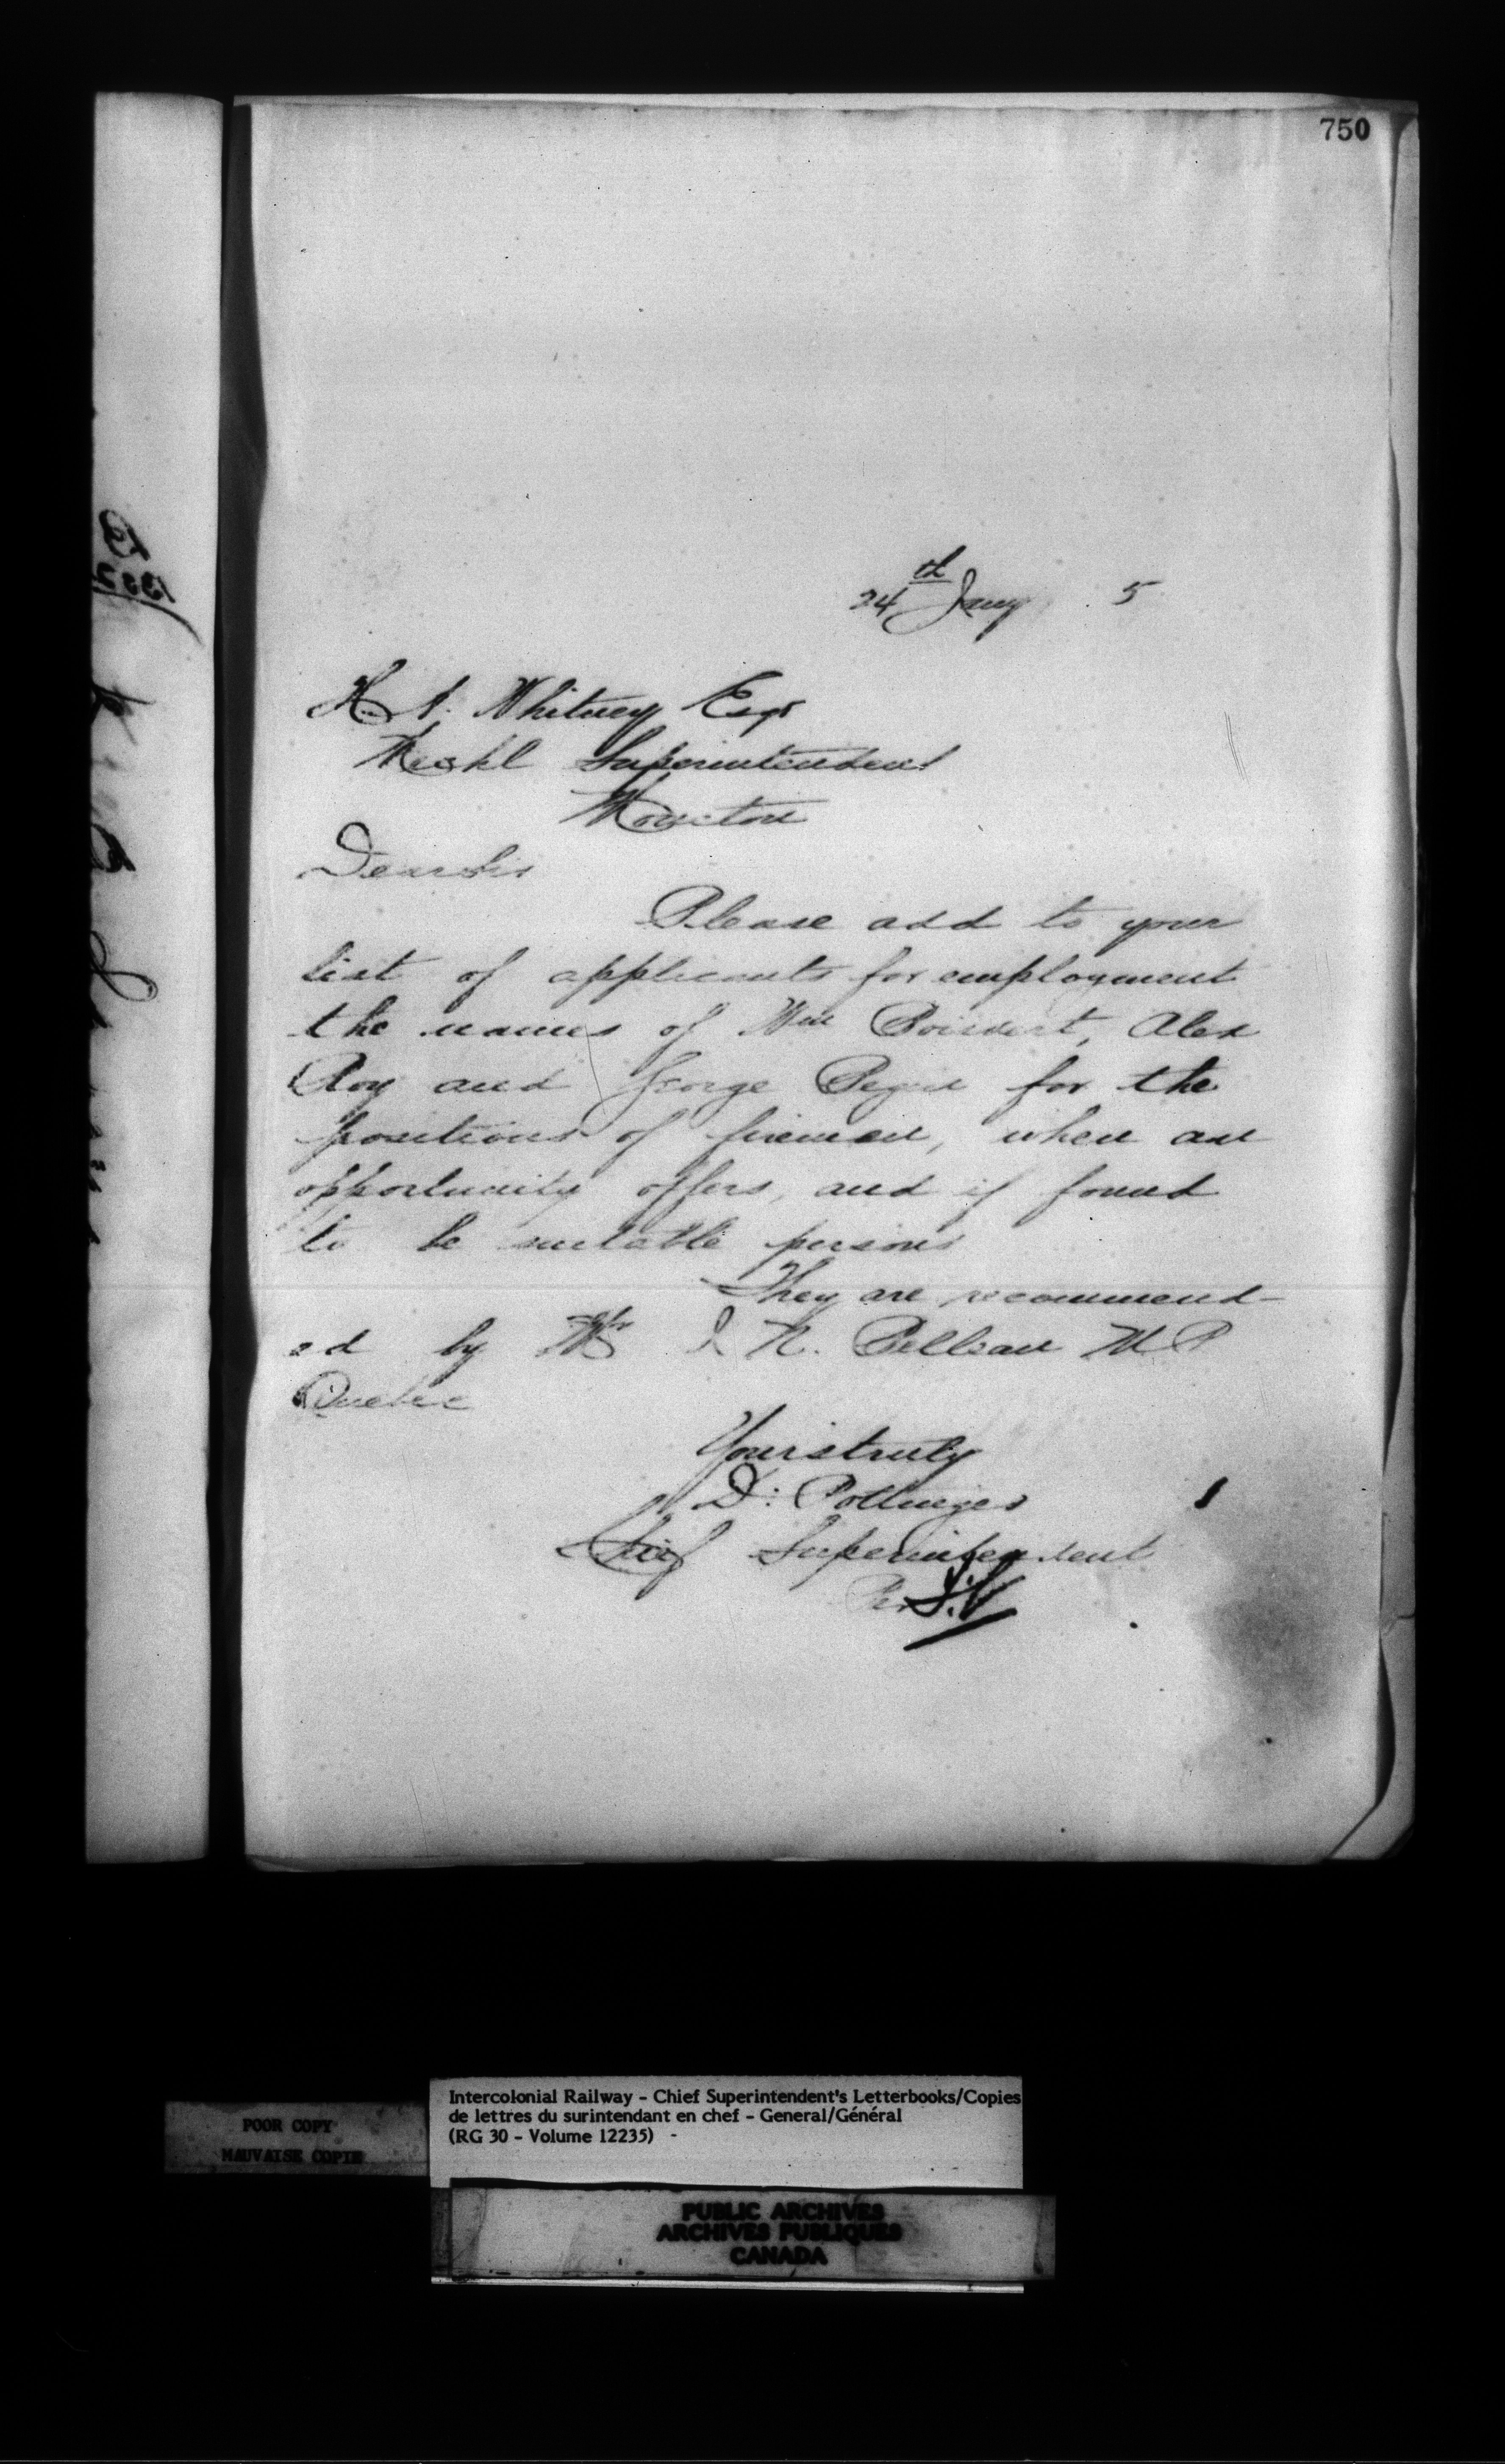 750
24th Jany 5
H. A. Whitney Esqr
Mechl Superintendent
Moncton
Dear Sir
Please add to your
list of applicants for employment
the names of Wm Alex
Roy and George for the
positions of firemen, when an
opportunity offers, and if found
to be suitable persons
They are recommend-
ed by Mr N. Belleau M P
Quebec
Yours truly
D. Pottinger
Chief Superintendent
Per
POOR COPY
MAUVAISE COPIE
Intercolonial Railway - Chief Superintendent's Letterbooks/Copies
de lettres du surintendant en chef - General/Général
(RG 30 - Volume 12235) -
PUBLIC ARCHIVES
ARCHIVES PUBLIQUES
CANADA